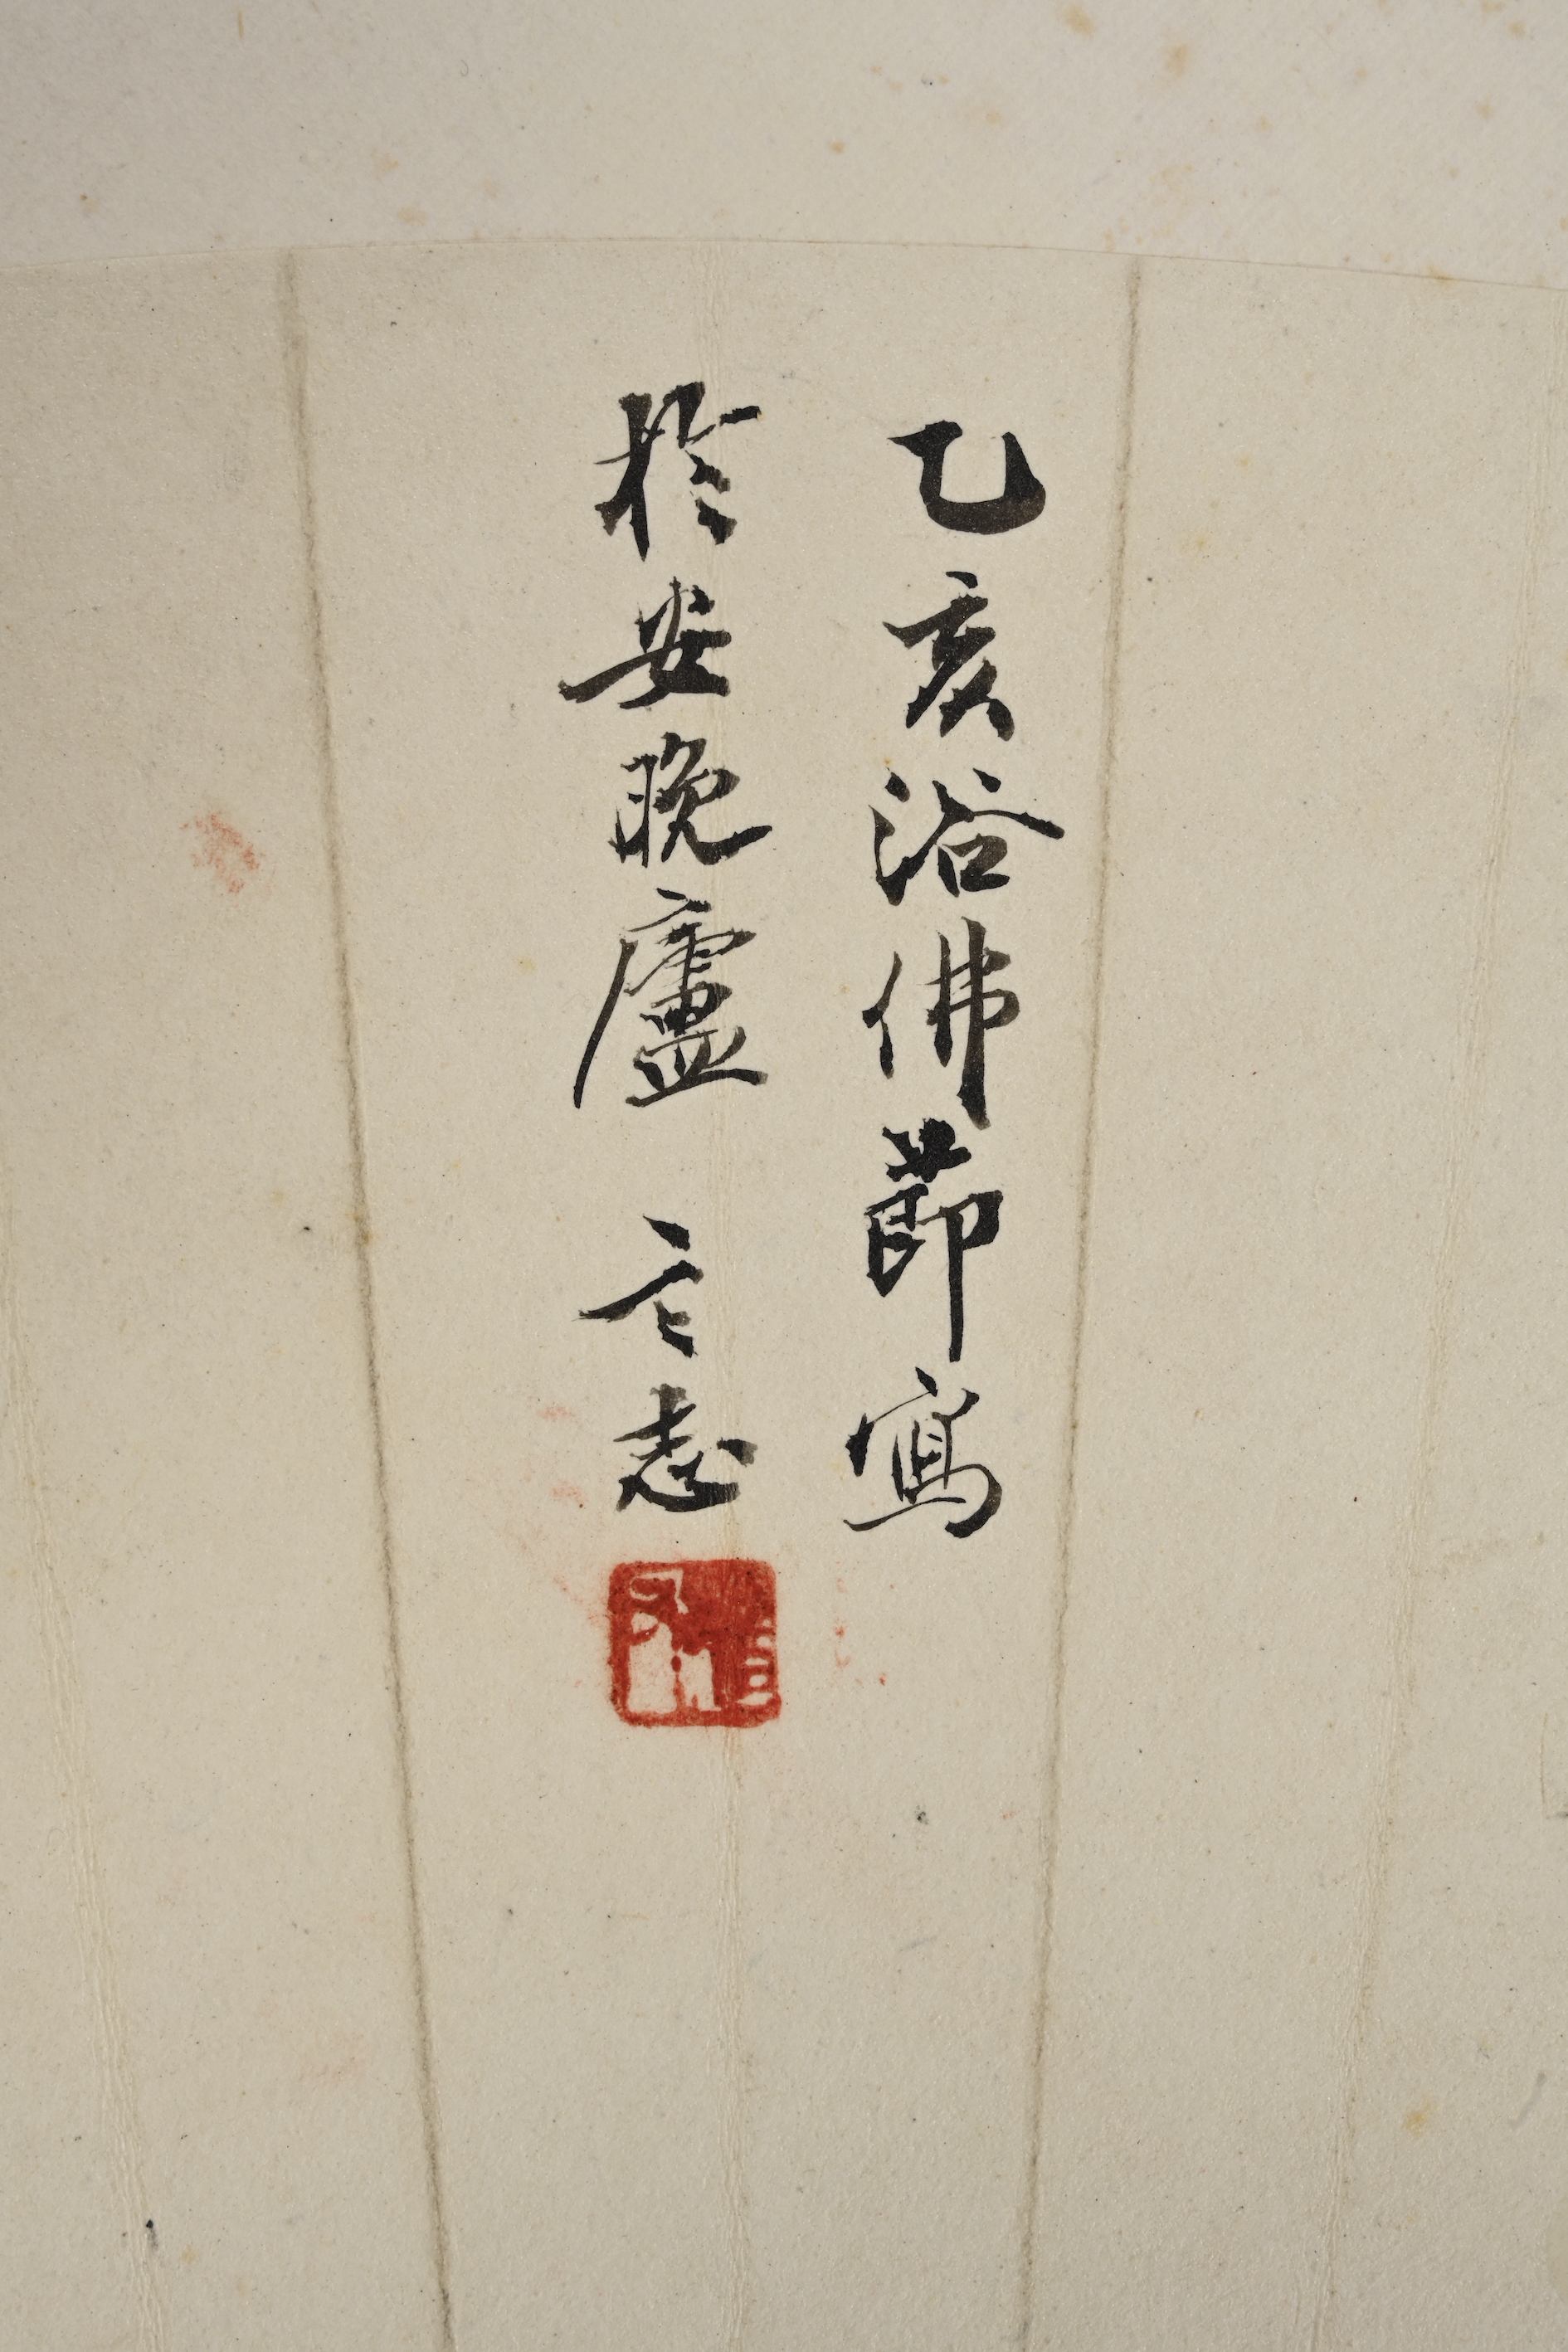 乙亥浴佛節寫
於安晚廬 言志